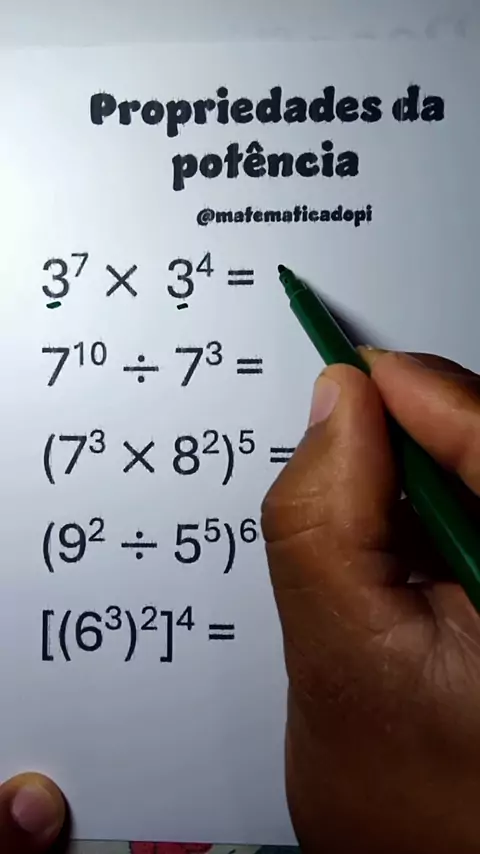 Propriedades da
potência
@matematicadopi
3⁷ × 3⁴ =
7¹⁰ ÷ 7³ =
(7³ × 8²)⁵ =
(9² ÷ 5⁵)⁶
[(6³)²]⁴ =